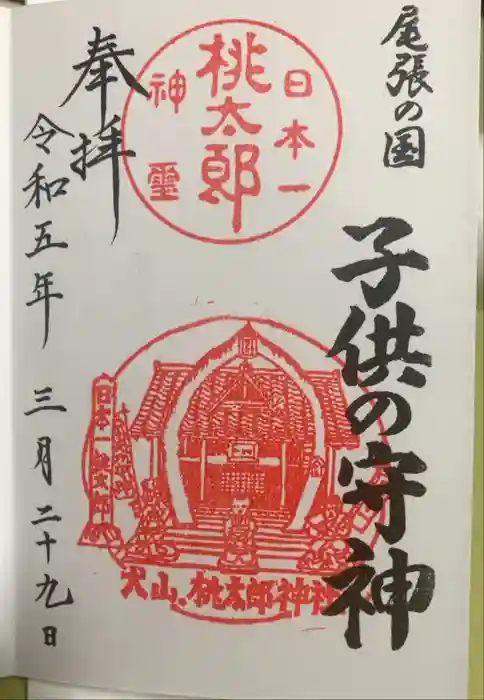 尾張の国
子供の守神
日本一
桃太郎
神霊
奉拝
令和五年 三月二十九日
日本一桃太郎
犬山、桃太郎神社